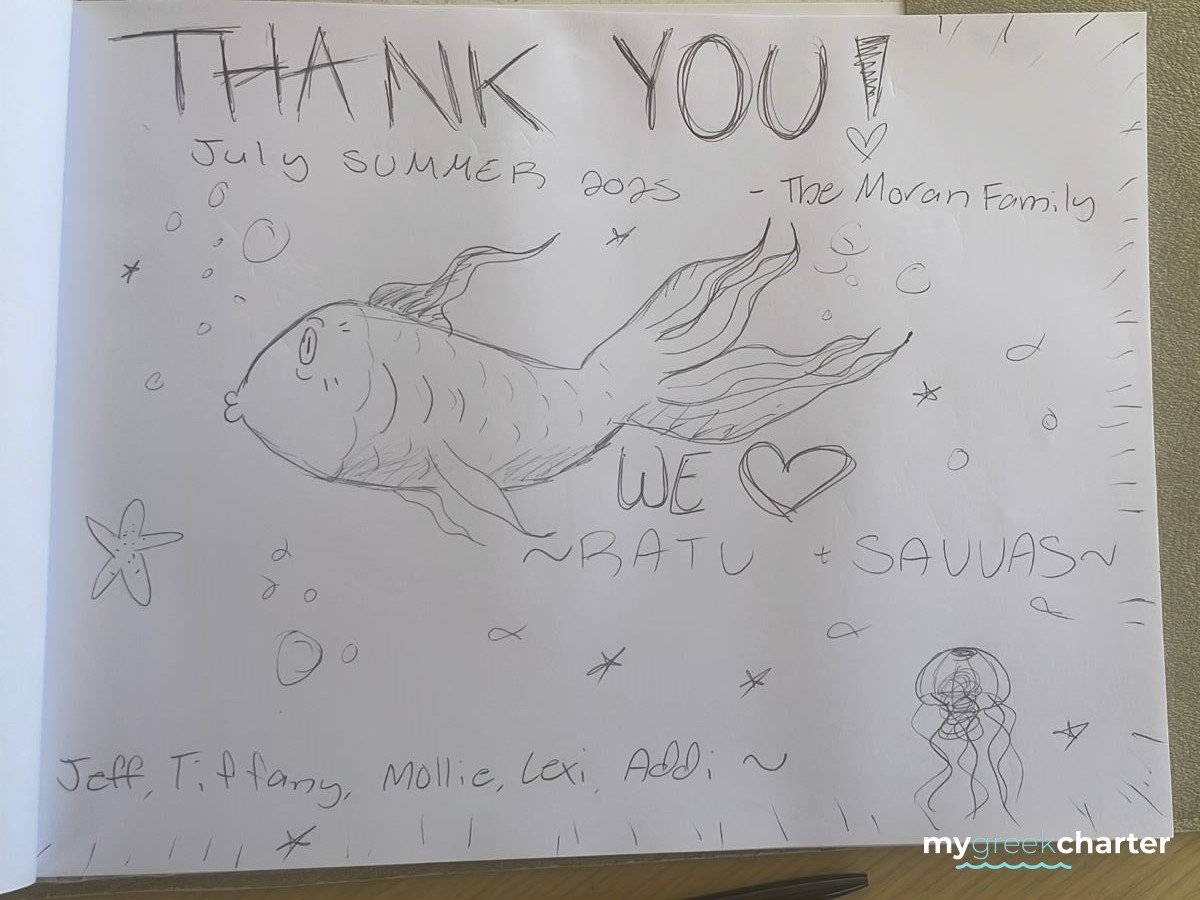 THANK YOU!
July SUMMER 2025 - The Moran Family
WE ♡
~RATU + SAVVAS~
Jeff, Tiffany, Mollie, Lexi, Addi ~
mygreekcharter